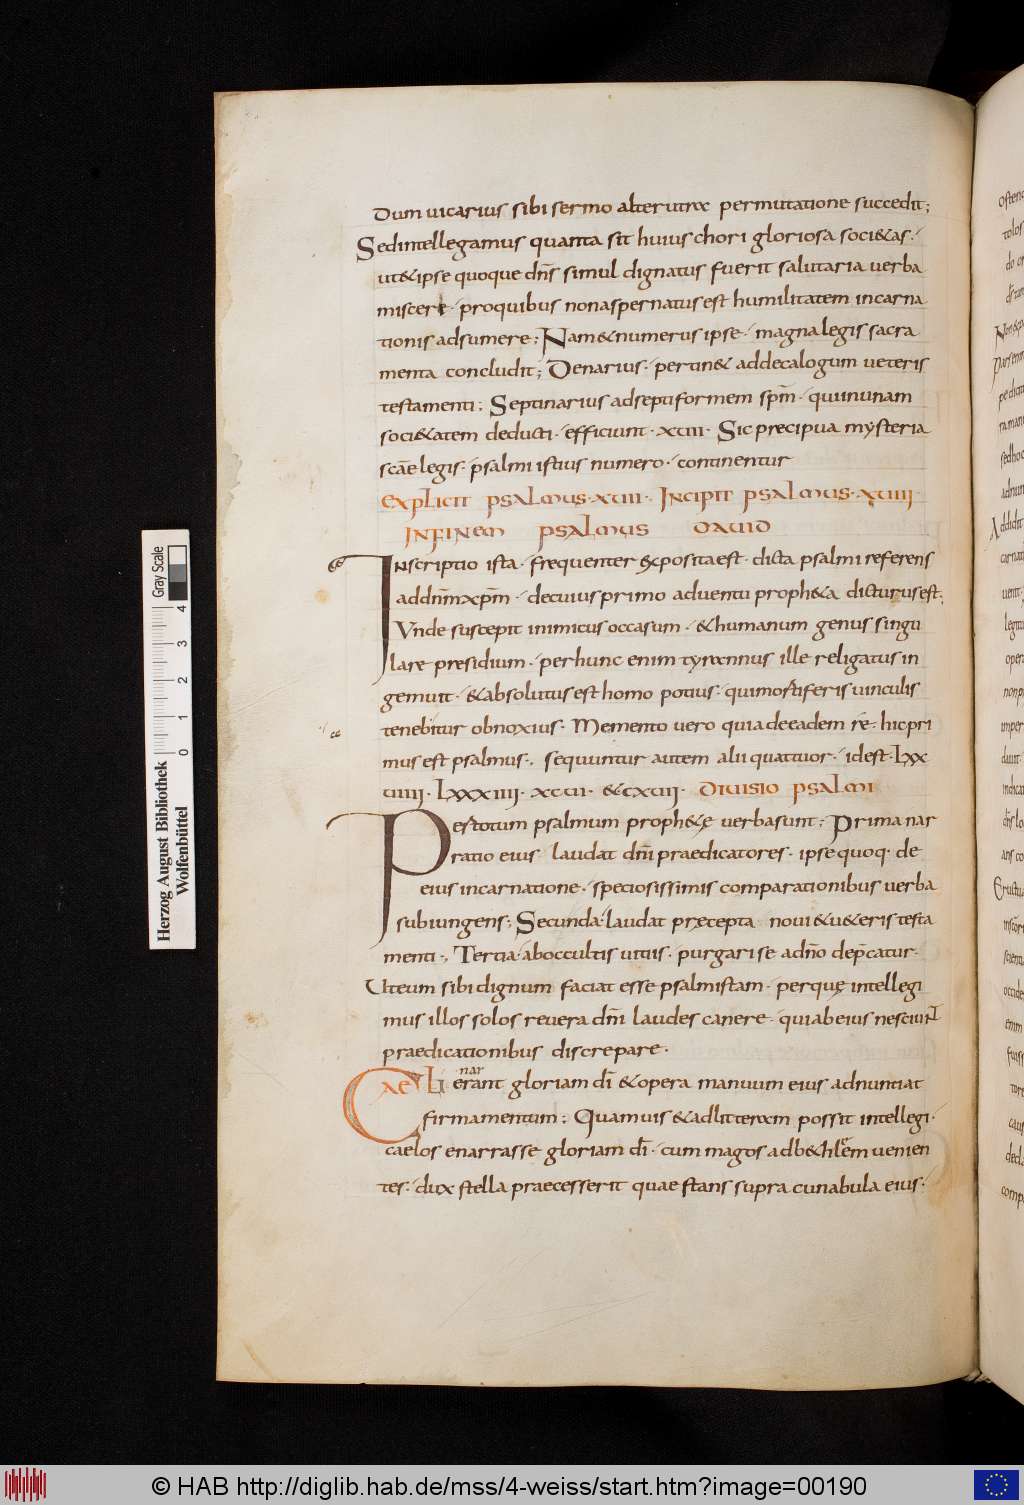 Dum uicarius sibi sermo alterutra permutatione succedit;
Sed intellegamus quanta sit huius chori gloriosa soci&as.
ut & ipse quoque dn̄s simul dignatus fuerit salutaria uerba
miscere. pro quibus non aspernatus est humilitatem incarna
tionis adsumere; Nam & numerus ipse. magna legis sacra
menta concludit; Denarius. pertin& ad decalogum ueteris
testamenti; Septinarius ad septiformem spm̄. qui in unam
soci&atem deducti. efficiunt. xuiii. Sic precipua mysteria
scāe legis. psalmi istius numero. continentur
EXPLICIT PSALMUS. XUIII. INCIPIT PSALMUS. XUIIII.
IN FINEM PSALMUS DAUID
Inscriptio ista. frequenter exposita est. dicta psalmi referens
ad dnm̄ xpm̄. de cuius primo aduentu proph&a dicturus est;
Vnde suscepit inimicus occasum. & humanum genus singu
lare presidium. per hunc enim tyrannus ille religatus in
gemuit. & absolutus est homo potius. qui mortiferis uinculis
tenebitur obnoxius. Memento uero quia de eadem rē. hic pri
mus est psalmus. sequuntur autem alii quattuor. id est. Lxx
uiiii. Lxxxiiii. xcui. & cxuii. DIUISIO PSALMI
Per totum psalmum proph&ę uerba sunt; Prima nar
ratio eius laudat dn̄i praedicatores. ipse quoq. de
eius incarnatione. speciosissimis comparationibus uerba
subiungens; Secunda. laudat pręcepta noui & u&eris testa
menti; Tertia. ab occultis uitiis. purgari se a dn̄o dep̄catur.
Ut eum sibi dignum faciat esse psalmistam. per quę intellegi
mus illos solos reuera dn̄i laudes canere. qui ab eius nesciunt
praedicationibus discrepare.
nar
Caeli enarrant gloriam dī & opera manuum eius adnuntiat
firmamentum; Quamuis & ad litteram possit intellegi.
caelos enarrasse gloriam dī. cum magos ad b&hlēm uenien
tes. dux stella praecesserit quae stans supra cunabula eius.
Herzog August Bibliothek
Wolfenbüttel
Gray Scale
0 1 2 3 4
© HAB http://diglib.hab.de/mss/4-weiss/start.htm?image=00190